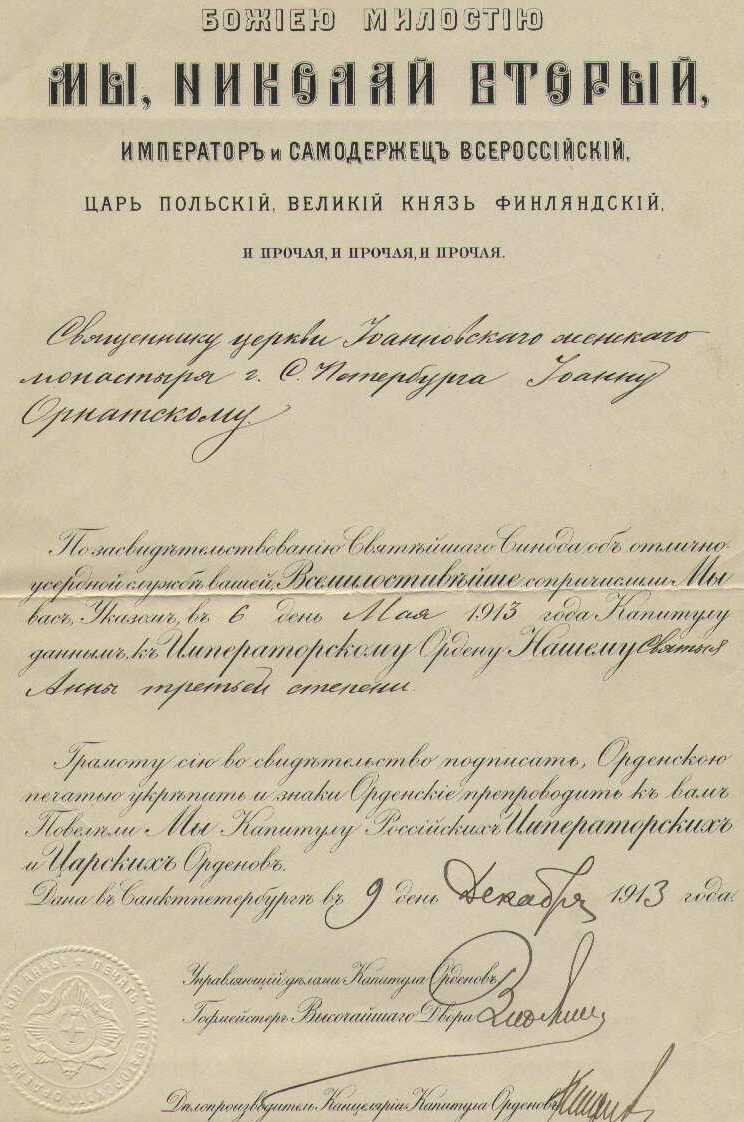 БОЖІЕЮ МИЛОСТІЮ
МЫ, НИКОЛАЙ ВТОРЫЙ,
ИМПЕРАТОРЪ и САМОДЕРЖЕЦЪ ВСЕРОССІЙСКІЙ,
ЦАРЬ ПОЛЬСКІЙ, ВЕЛИКІЙ КНЯЗЬ ФИНЛЯНДСКІЙ,
И ПРОЧАЯ, И ПРОЧАЯ, И ПРОЧАЯ.
Священнику церкви Іоанновскаго женскаго
монастыря г. С. Петербурга Іоанну
Орнатскому.
По засвидѣтельствованію Святѣйшаго Синода объ отлично-
усердной службѣ вашей, Всемилостивѣйше сопричислили Мы
васъ, Указомъ, въ 6 день Мая 1913 года Капитулу
даннымъ, къ Императорскому Ордену Нашему Святыя
Анны третьей степени.
Грамоту сію во свидѣтельство подписать, Орденскою
печатью укрѣпить и знаки Орденскіе препроводить къ вамъ
Повелѣли Мы Капитулу Россійскихъ Императорскихъ
и Царскихъ Орденовъ.
Дана въ Санктпетербургѣ въ 9 день Декабря 1913 года.
Управляющій дѣлами Капитула Орденовъ,
Гофмейстеръ Высочайшаго Двора
Дѣлопроизводитель Канцеляріи Капитула Орденовъ